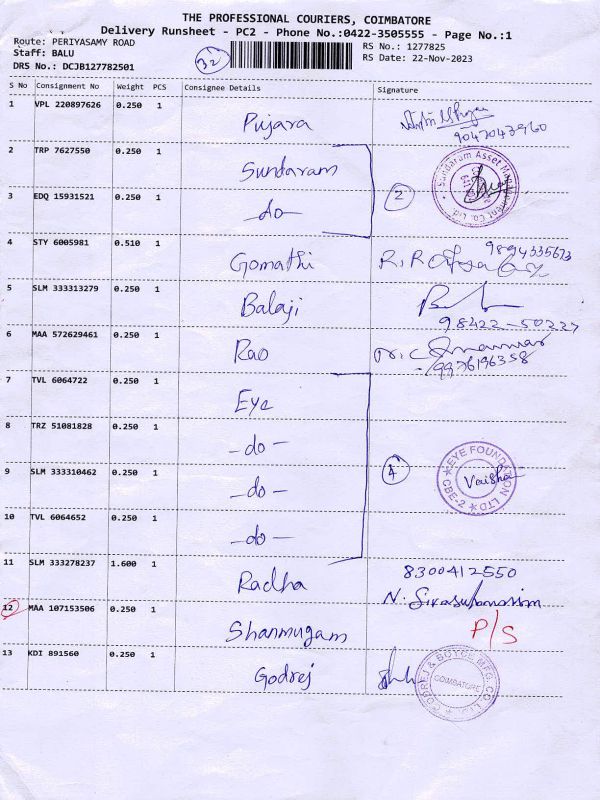 THE PROFESSIONAL COURIERS, COIMBATORE
Delivery Runsheet - PC2 - Phone No.:0422-3505555 - Page No.:1
Route: PERIYASAMY ROAD
Staff: BALU
DRS No.: DCJB127782501
32
RS No.: 1277825
RS Date: 22-Nov-2023
S No Consignment No Weight PCS Consignee Details Signature
1 VPL 220897626 0.250 1 Pujara
9047043960
2 TRP 7627550 0.250 1 Sundaram
3 EDQ 15931521 0.250 1 -do-
2
Sundaram Asset Management Co. Ltd.
4 STY 6005981 0.510 1 Gomathi 9894335673
5 SLM 333313279 0.250 1 Balaji
98422-50227
6 MAA 572629461 0.250 1 Rao
9976196358
7 TVL 6064722 0.250 1 Eye
8 TRZ 51081828 0.250 1 -do-
9 SLM 333310462 0.250 1 -do-
4
EYE FOUNDATION LTD
CBE-2
10 TVL 6064652 0.250 1 -do-
11 SLM 333278237 1.600 1 Radha 8300412550
12 MAA 107153506 0.250 1 Shanmugam P/S
13 KDI 891560 0.250 1 Godrej
GODREJ & BOYCE MFG. CO. LTD.
COIMBATORE